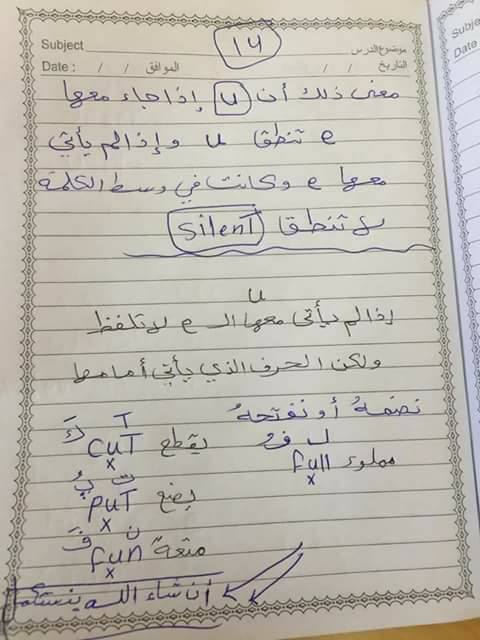 Subject موضوع الدرس
١٤
Date : / / الموافق / / التاريخ
معنى ذلك أن u إذا جاء معها
e تنطق u وإذا لم يأتي
معها e وكانت في وسط الكلمة
لا تنطق silenT
u
إذا لم يأتي معها الـ e لا تلفظ
ولكن الحرف الذي يأتي أمامها
نضمهُ أو نفتحهُ
كَ ت
يقطع cuT
x
فُ ل
مملوء full
x
پُ ت
يضع puT
x
فَ ن
متعة fun
x
ان شاء الله
Subje
Date